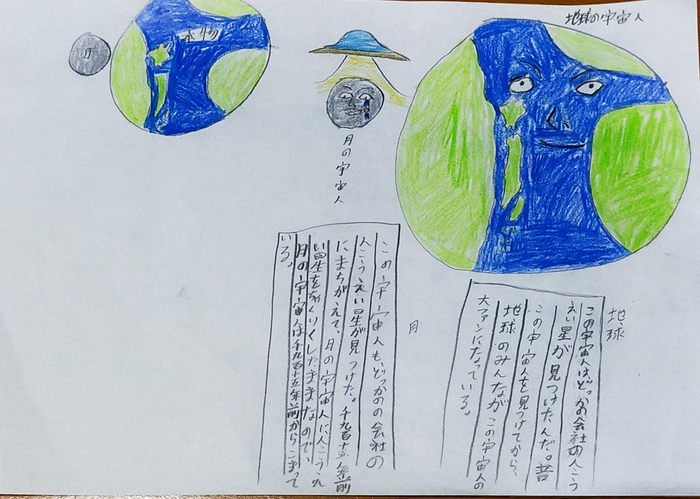 地球の宇宙人
本物
月
月の宇宙人
地球
この宇宙人はどっかの会社の人こう
えい星が見つけたんだ。昔
この宇宙人を見つけてから、
地球のみんながこの宇宙人の
大ファンになっている。
月
この宇宙人も、どっかの会社の
人こうえい星が見つけた。千九百十五年前
にまちがえて、月の宇宙人に人こうえ
い星をしたままなので、
月の宇宙人は千九百十五年前からこまって
いる。